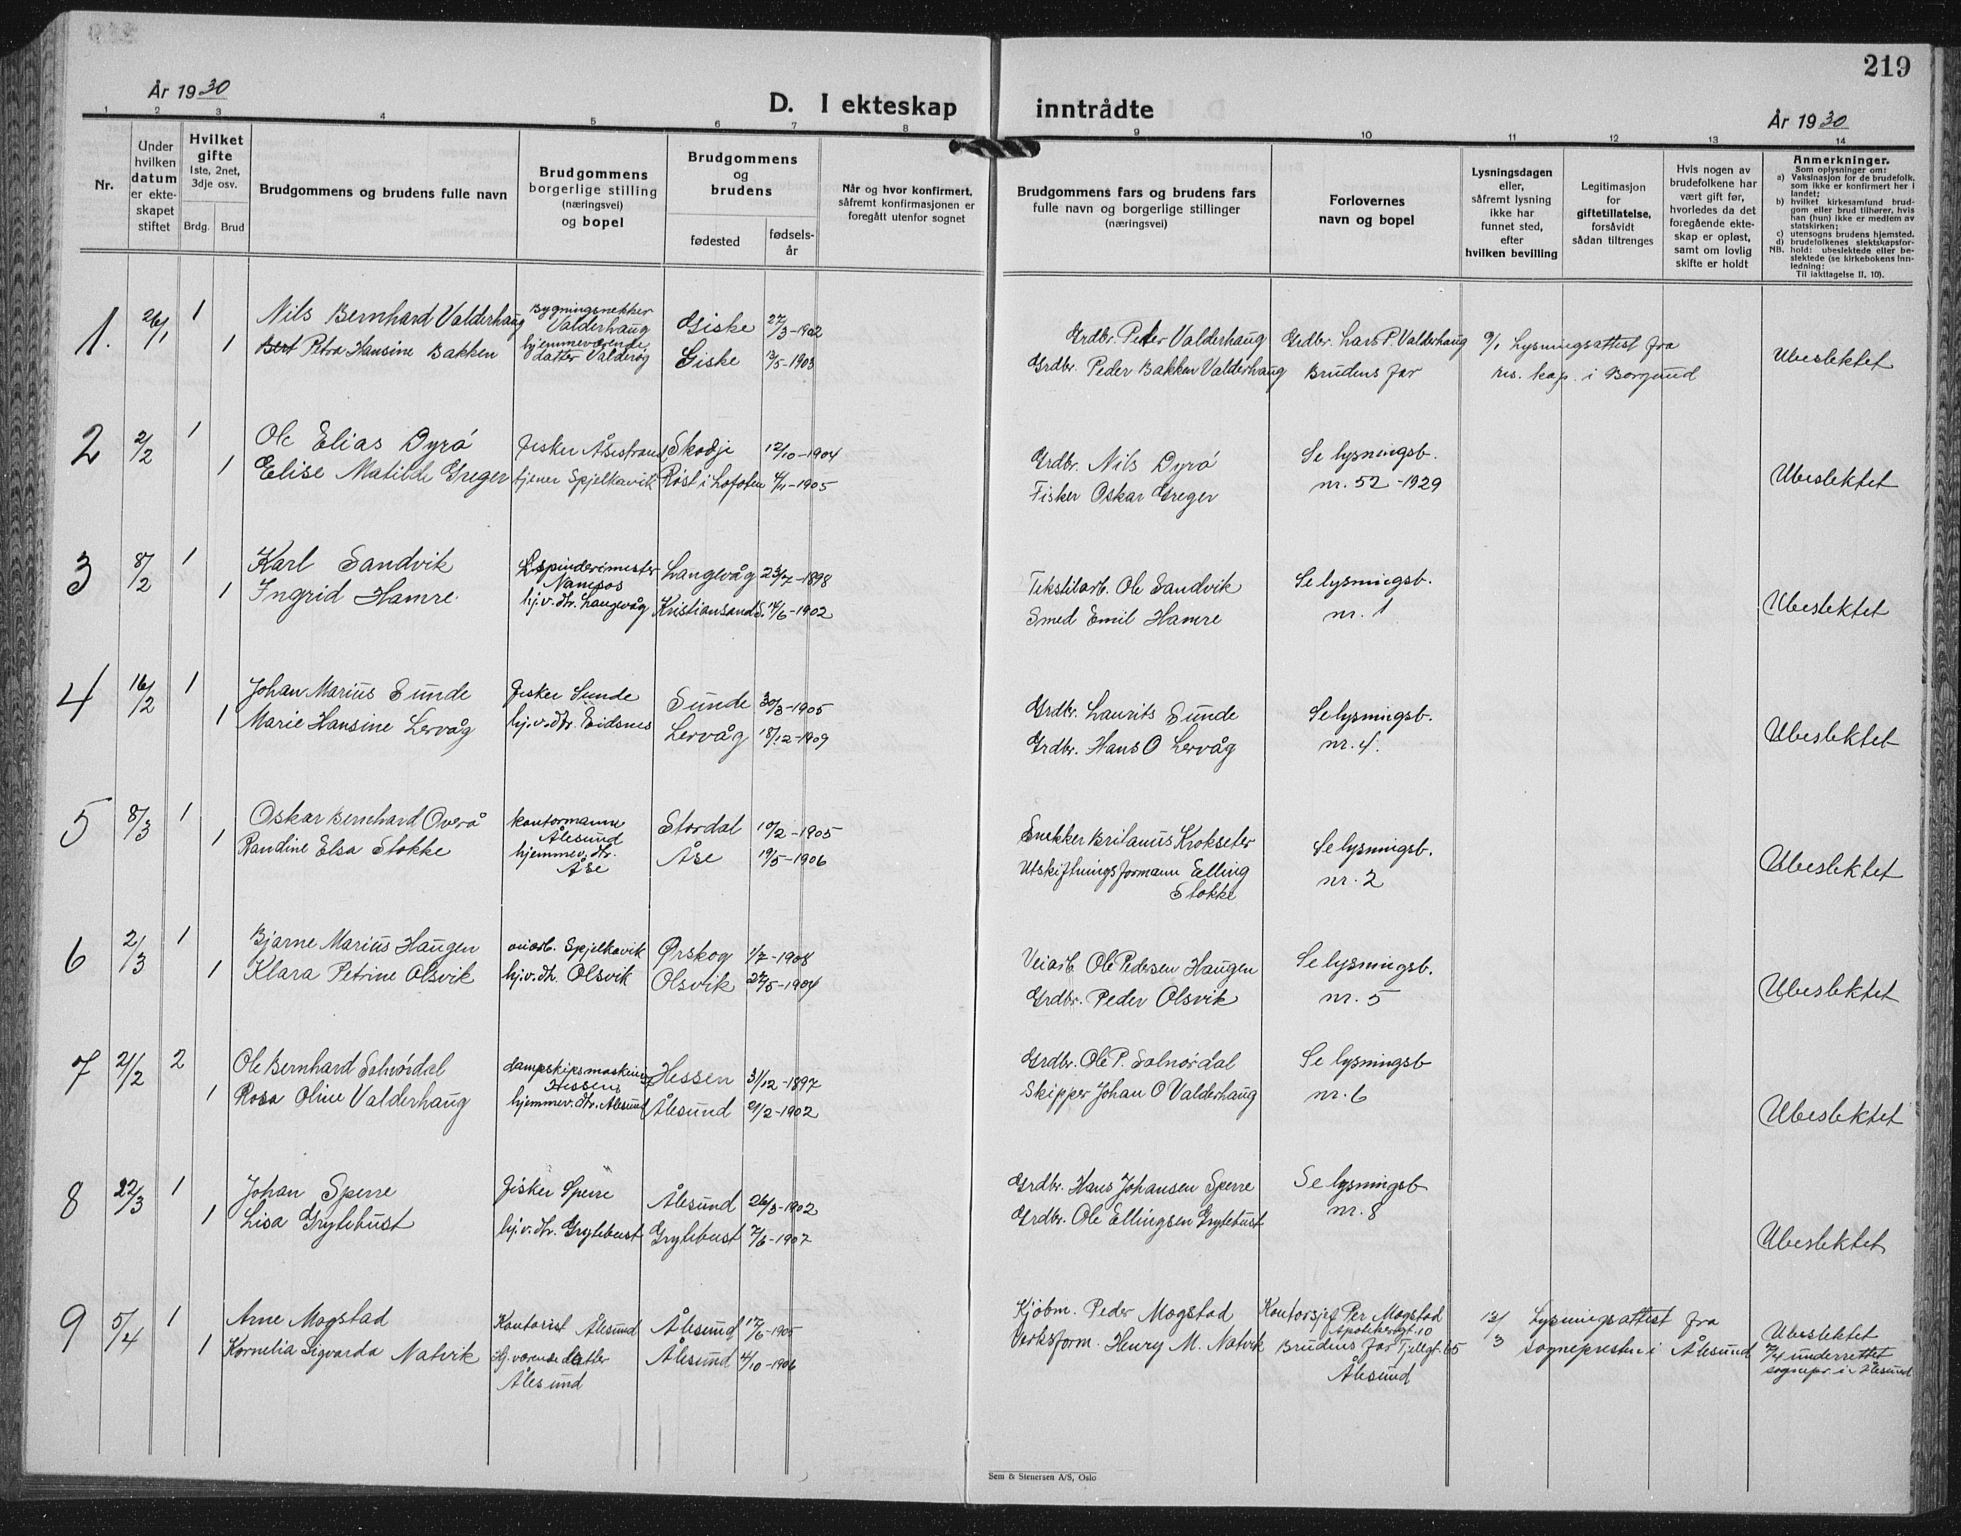 219
År 1930
D. I ekteskap inntrådte
År 1930
1 2 3 4 5 6 7 8 9 10 11 12 13 14
Nr.
Under hvilken datum er ekteskapet stiftet
Hvilket gifte
1ste, 2net, 3dje osv.
Brdg. Brud
Brudgommens og brudens fulle navn
Brudgommens borgerlige stilling (næringsvei) og bopel
Brudgommens og brudens
fødested
fødselsår
Når og hvor konfirmert, såfremt konfirmasjonen er foregått utenfor sognet
Brudgommens fars og brudens fars fulle navn og borgerlige stillinger (næringsvei)
Forlovernes navn og bopel
Lysningsdagen eller, såfremt lysning ikke har funnet sted, efter hvilken bevilling
Legitimasjon for giftetillatelse, forsåvidt sådan tiltrenges
Hvis nogen av brudefolkene har vært gift før, hvorledes da det foregående ekteskap er opløst, samt om lovlig skifte er holdt
Anmerkninger.
Som oplysninger om:
a) Vaksinasjon for de brudefolk, som ikke er konfirmert her i landet;
b) hvilket kirkesamfund brudgom eller brud tilhører, hvis han (hun) ikke er medlem av statskirken;
c) utensogns brudens hjemsted.
d) brudefolkenes slektskapsforhold: ubeslektede eller beslektede (se kirkebokens Innledning:
NB.
Til iakttagelse II, 10).
1. 26/1 1 Nils Bernhard Valderhaug Bygningsnekker Valderhaug Giske 27/3-1902 Grdbr. Peder Valderhaug Grdbr. Lars P. Valderhaug 9/1 Lysningsattest fra
1 Bert Petra Hansine Bakken hjemmeværende datter Valderøy Giske 13/5-1903 Grdbr. Peder Bakken Valderhaug Brudens far res. kap. i Borgund Ubeslektet
2 2/2 1 Ole Elias Dyrø fisker Åsestrand Skodje 12/10-1904 Grdbr. Nils Dyrø Se lysningsb.
1 Elise Matilde Greger tjener Spjelkavik Røst i Lofoten 4/11-1905 Fisker Oskar Greger nr. 52-1929 Ubeslektet
3 8/2 1 Karl Sandvik spinderimester Namsos Langevåg 23/7-1898 Tekstilarb. Ole Sandvik Se lysningsb.
1 Ingrid Hamre hj.v.dtr. Langevåg Kristiansand S. 14/6-1902 Smed Emil Hamre nr. 1 Ubeslektet
4 16/2 1 Johan Marius Sunde fisker Sunde Sunde 30/3-1905 Grdbr. Laurits Sunde Se lysningsb.
1 Marie Hansine Lervåg hj.v.dtr. Eidsnes Lervåg 18/12-1909 Grdbr. Hans O Lervåg nr. 4. Ubeslektet
5 8/3 1 Oskar Bernhard Overå kontormann Ålesund Stordal 10/2-1905 Snekker Brilanus Krokseter Se lysningsb.
1 Randine Elsa Stokke hjemmev. dtr. Åse Åse 19/5-1906 Utskiftningsformann Elling Stokke nr. 2 Ubeslektet
6 2/3 1 Bjarne Marius Haugen Spjelkavik Ørskog 1/7-1908 Veiarb. Ole Pedersen Haugen Se lysningsb.
1 Klara Petrine Olsvik hj.v.dtr. Olsvik Olsvik 27/5-1904 Grdbr. Peder Olsvik nr. 5 Ubeslektet
7 21/2 2 Ole Bernhard Solnørdal dampskipsmaskinist Hessen Hessen 31/12-1897 Grdbr. Ole P. Solnørdal Se lysningsb
1 Rosa Oline Valderhaug hjemmev. dtr. Ålesund Ålesund 21/2-1902 Skipper Johan O Valderhaug nr. 6 Ubeslektet
8 22/3 1 Johan Sperre fisker Sperre Ålesund 26/3-1902 Grdbr. Hans Johansen Sperre Se lysningsb
1 Lisa Grytebust hj.v.dtr. Grytebust Grytebust 7/6-1907 Grdbr. Ole Ellingsen Grytebust nr. 8 Ubeslektet
9 5/4 1 Arne Mogstad Kontorist Ålesund Ålesund 17/6-1905 Kjøbm. Peder Mogstad Kontorsjef Per Mogstad Apotekergt. 10 13/3 Lysningsattest fra Ubeslektet
1 Kornelia Sigvarda Natvik hj.værende datter Ålesund Ålesund 4/10-1906 Verksform. Henry M. Natvik Brudens far Tjellgt. 65 Ålesund sognepresten i Ålesund 7/4 underrettet sognepr. i Ålesund
Sem & Stenersen A/S, Oslo